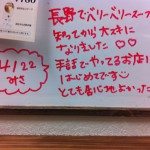 長野でベリーベリースープ
知ってから大スキに
なりました♡♡
手話でやってるお店に
はじめてです
とても居心地よかった
4/22
みき